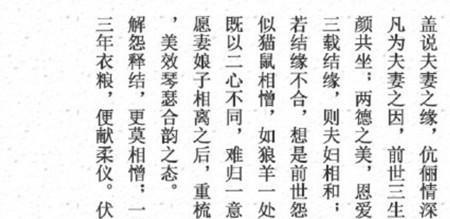 盖说夫妻之缘，伉俪情深
凡为夫妻之因，前世三生
颜共坐；两德之美，恩爱
三载结缘，则夫妇相和；
若结缘不合，想是前世怨
似猫鼠相憎，如狼羊一处
既以二心不同，难归一意
愿妻娘子相离之后，重梳
，美效琴瑟合韵之态。
解怨释结，更莫相憎；一
三年衣粮，便献柔仪。伏